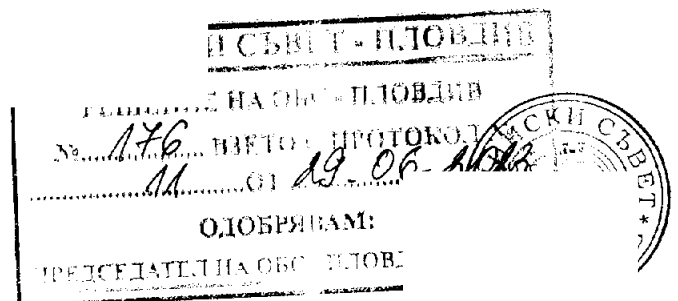 И СЪВЕТ - ПЛОВДИВ
РЕШЕНИЕ НА ОБС - ПЛОВДИВ
№ 176 ВЗЕТО С ПРОТОКОЛ
11 ОТ 19.06.2012
ОДОБРЯВАМ:
ПРЕДСЕДАТЕЛ НА ОБС ПЛОВ
СКИ СЪВЕТ *